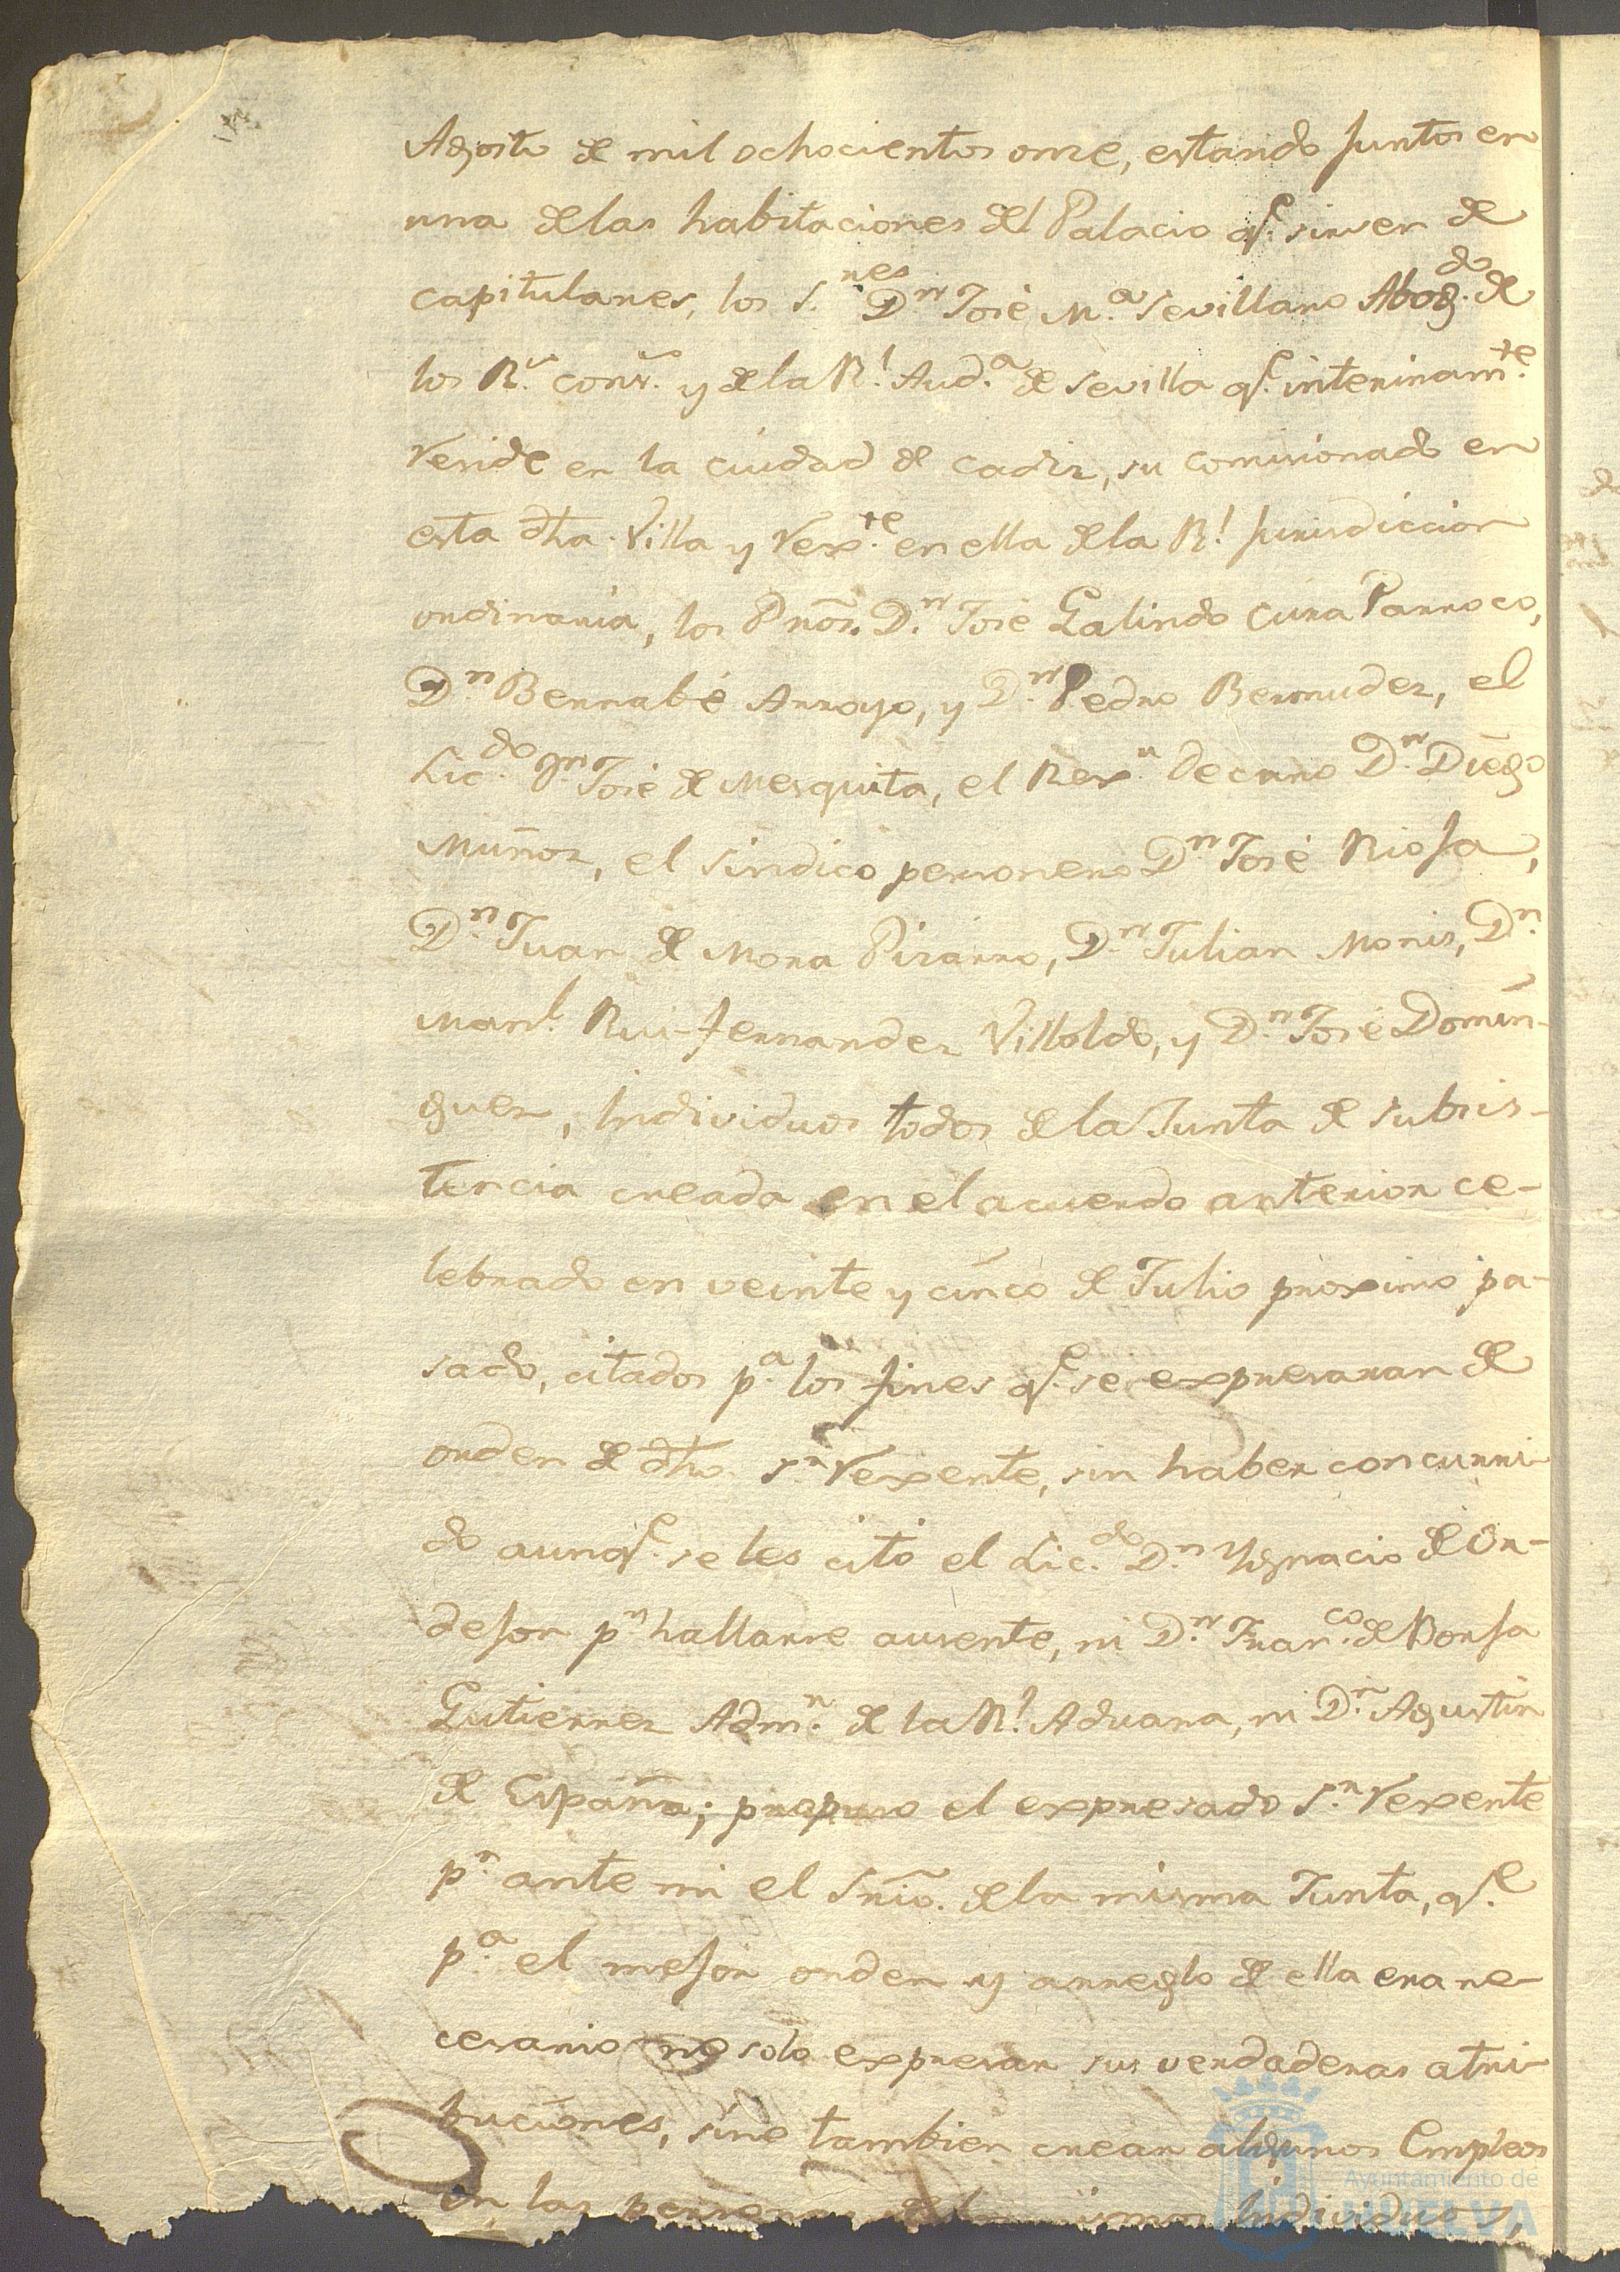 Agosto de mil ochocientos once, estando juntos en
una de las habitaciones del Palacio q.e sirven de
capitulares, los S.res D.n José M.a Sevillano Abog.do de
los R.s cons.s y de la R.l Aud.a de Sevilla q.e interinam.te
reside en la ciudad de Cadiz, su comisionado en
esta dha. Villa y Rex.te en ella de la R.l Jurisdiccion
ordinaria, los Pnõs. D.n José Galindo Cura Parroco,
D.n Bernabé Arroyo, y D.n Pedro Bermudez, el
Lic.do D.n José de Mezquita, el Rex.r Decano D.n Diego
Muñoz, el Sindico personero D.n José Rioja,
D.n Juan de Mora Pizarro, D.n Julian Monis, D.n
Man.l Rui-fernandez Villoldo, y D.n José Domin-
guez, Individuos todos de la Junta de subsis-
tencia creada en el acuerdo anterior ce-
lebrado en veinte y cinco de Julio proximo pa-
sado, citados p.a los fines q.e se expresaran de
orden de dho. S.r Rexente, sin haber concurri-
do aunq.e se les citó el Lic.do D.n Ygnacio de Or-
dejon p.r hallarse ausente, ni D.n Fran.co de Borja
Gutierrez Adm.r de la R.l Aduana, ni D.n Agustin
de España; propuso el expresado S.r Rexente
p.r ante mi el Srio. de la misma Junta, q.e
p.a el mejor orden y arreglo de ella era ne-
cesario no solo expresar sus verdaderas atri-
buciones, sino tambien crear algunos Empleos
en las personas de los mismos Individuos,
Ayuntamiento de
HUELVA